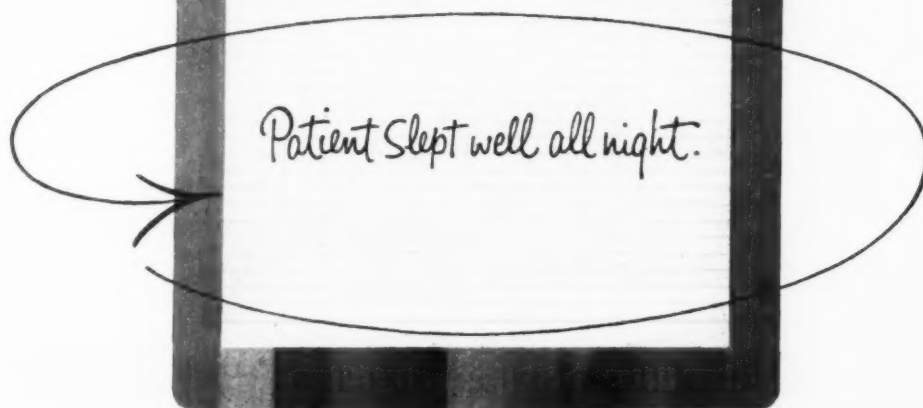 Patient Slept well all night.